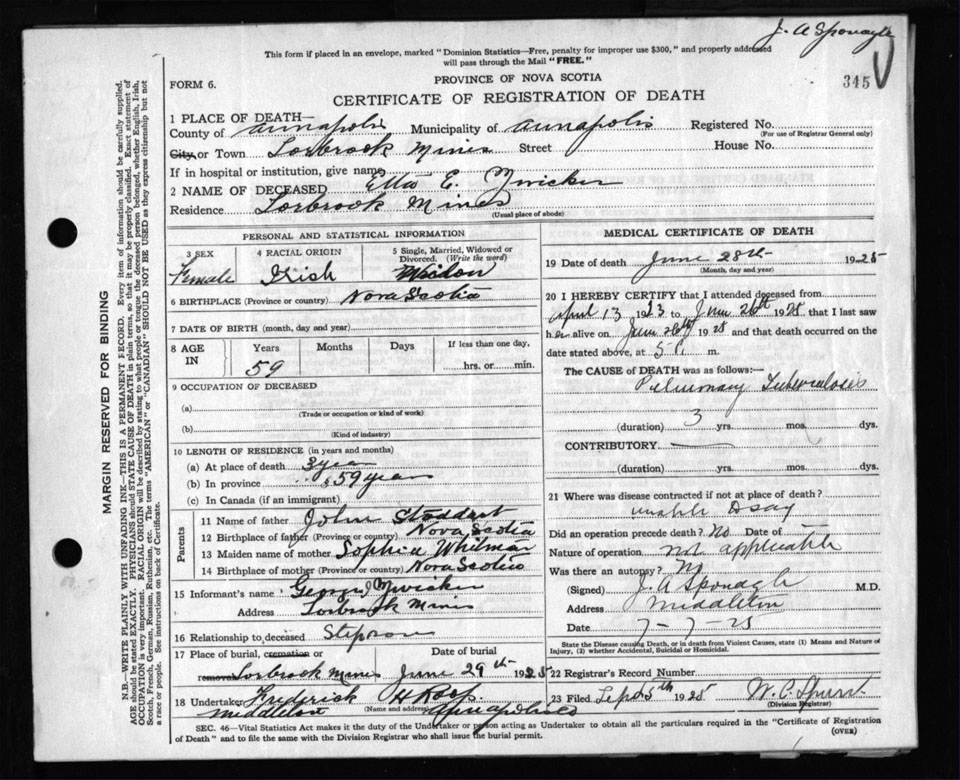 J. A Sponagle
This form if placed in an envelope, marked "Dominion Statistics—Free, penalty for improper use $300," and properly addressed
will pass through the Mail "FREE."
PROVINCE OF NOVA SCOTIA
FORM 6.
345
CERTIFICATE OF REGISTRATION OF DEATH
1 PLACE OF DEATH—
County of Annapolis Municipality of Annapolis Registered No.
(For use of Registrar General only)
City or Town Torbrook Mines Street House No.
If in hospital or institution, give name
2 NAME OF DECEASED Etta E. Zwicker
Residence Torbrook Mines
(Usual place of abode)
PERSONAL AND STATISTICAL INFORMATION
3 SEX 4 RACIAL ORIGIN 5 Single, Married, Widowed or Divorced. (Write the word)
Female Irish
6 BIRTHPLACE (Province or country) Nova Scotia
7 DATE OF BIRTH (month, day and year)
8 AGE IN Years Months Days If less than one day,
59 hrs. or min.
9 OCCUPATION OF DECEASED
(a)
(Trade or occupation or kind of work)
(b)
(Kind of industry)
10 LENGTH OF RESIDENCE (in years and months)
(a) At place of death 3 years
(b) In province 59 years
(c) In Canada (if an immigrant)
Parents
11 Name of father John Stoddart
12 Birthplace of father (Province or country) Nova Scotia
13 Maiden name of mother Sophia Whitman
14 Birthplace of mother (Province or country) Nova Scotia
15 Informant's name George Zwicker
Address Torbrook Mines
16 Relationship to deceased Stepson
17 Place of burial, cremation or Date of burial
removal Torbrook Mines June 29th 1925
18 Undertaker Frederick
Middleton (Name and address) Annapolis
MEDICAL CERTIFICATE OF DEATH
19 Date of death June 28th 1925
(Month, day and year)
20 I HEREBY CERTIFY that I attended deceased from
April 13 1923 to June 26th 1925 that I last saw
her alive on June 26th 1925 and that death occurred on
date stated above, at 5 P. m.
The CAUSE of DEATH was as follows:
Pulmonary Tuberculosis
(duration) 3 yrs. mos. dys.
CONTRIBUTORY.
(duration) yrs. mos. dys.
21 Where was disease contracted if not at place of death?
unable to say
Did an operation precede death? No Date of
Nature of operation not applicable
Was there an autopsy? No
(Signed) J. A Sponagle M.D.
Address Middleton
Date 7-7-25
State the Disease causing Death, or in death from Violent Causes, state (1) Means and Nature of
Injury, (2) whether Accidental, Suicidal or Homicidal.
22 Registrar's Record Number
23 Filed Sept 5th 1925 W. C.
(Division Registrar)
SEC. 46—Vital Statistics Act makes it the duty of the Undertaker or person acting as Undertaker to obtain all the particulars required in the "Certificate of Registration
of Death" and to file the same with the Division Registrar who shall issue the burial permit.
(OVER)
MARGIN RESERVED FOR BINDING
N.B.—WRITE PLAINLY WITH UNFADING INK—THIS IS A PERMANENT RECORD. Every item of information should be carefully supplied.
AGE should be stated EXACTLY. PHYSICIANS should STATE CAUSE OF DEATH in plain terms, so that it may be properly classified. Exact statement of
OCCUPATION is very important. RACIAL ORIGIN will be described by stating to what people or tongue the deceased person belonged, whether English, Irish,
Scotch, French, German, Russian, Ruthenian, etc. The terms "AMERICAN" or "CANADIAN" SHOULD NOT BE USED as they express citizenship but not
a race or people. See instructions on back of Certificate.